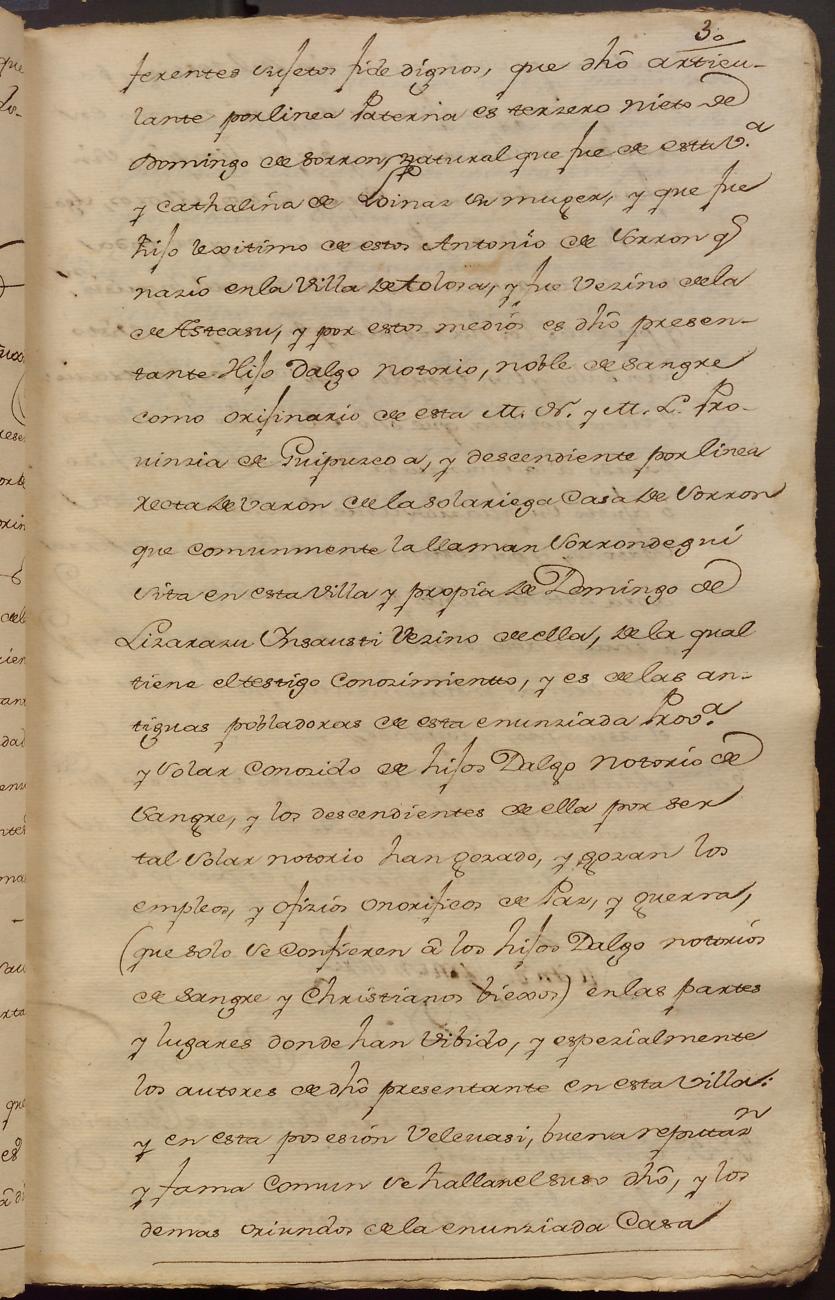 30
ferentes sujetos fide dignos, que dhõ articu-
lante por linea Paterna es terzero nieto de
Domingo de Sorron, natural que fue de esta V.ª
y Cathalina de su muger, y que fue
hijo lexitimo de estos Antonio de Sorron q̃
nazio en la Villa de tolosa, y fue Vezino de la
de Asteasu, y por estos medios es dhõ presen-
tante Hijo Dalgo notorio, noble de sangre
como orijinario de esta M. N. y M. L. Pro-
uinzia de Guipuzcoa, y descendiente por linea
recta de varon de la solariega Casa de Sorron
que comunmente la llaman Sorrondegui
sita en esta Villa y propia de Domingo de
Lizarazu Insausti Vezino de ella, de la qual
tiene el testigo Conozimiento, y es de las an-
tiguas pobladoras de esta enunziada Prov.ª
y Solar Conozido de hijos Dalgo notorio de
Sangre, y los descendientes de ella por ser
tal Solar notorio han gozado, y gozan los
empleos, y ofizios onorificos de Paz, y guerra,
(que solo se Confieren â los hijos Dalgo notorios
de sangre y Christianos biexos) en las partes
y lugares donde han vibido, y espezialmente
los autores de dhõ presentante en esta Villa:
y en esta posesion Velquasi, buena reputaz.n
y fama Comun se hallan el suso dhõ, y los
demas oriundos de la enunziada Casa